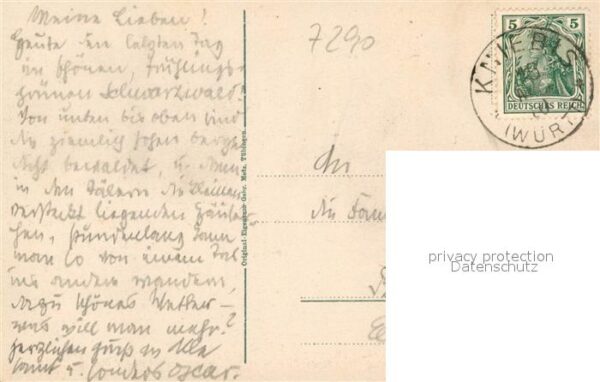 Meine Lieben!
Heute den letzten Tag
im schönen, frühlings-
grünen Schwarzwald.
Von unten bis oben sind
die ziemlich hohen Berge
dicht bewaldet, u. dann
in den Tälern die kleinen
versteckt liegenden Häuser-
chen, stundenlang kann
man so von einem Tal
ins andere wandern,
dazu schönes Wetter –
was will man mehr?
Herzlichen Gruß an Alle
samt u. sonders Oscar.
7290
5 5
DEUTSCHES REICH
KNIEBIS
(WÜRTT
Original-Eigentum Gebr. Metz, Tübingen
An
die Fam
privacy protection
Datenschutz